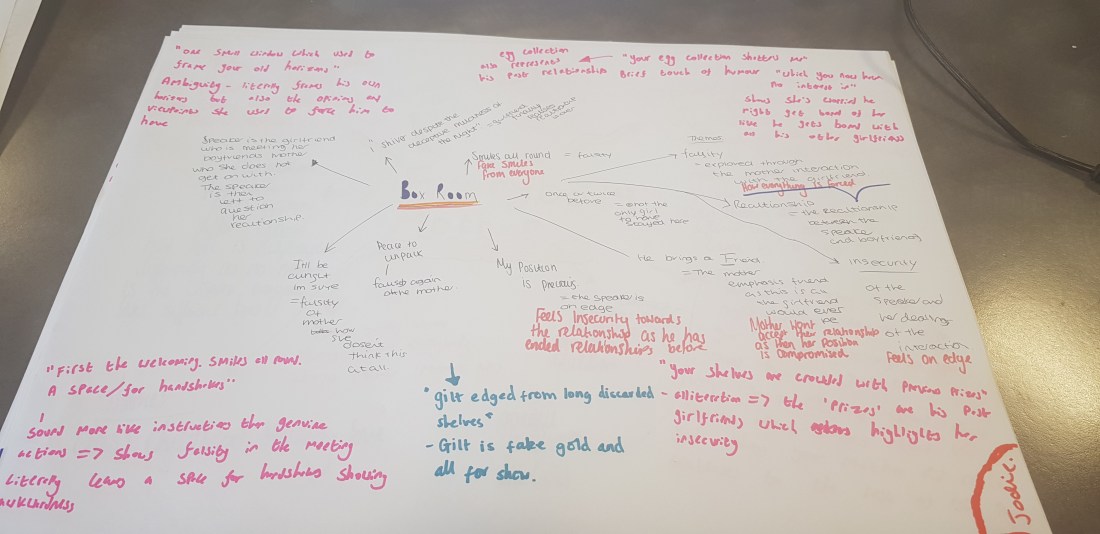 "one small window which used to
frame your old horizons"
Ambiguity - literally frames his own
horizons but also the opinions and
viewpoints she used to force him to
have
egg collection
also represents
his past relationship
"your egg collection shatters me"
Brief touch of humour
"which you now have
no interest in"
shows she's worried he
might get bored of her
like he gets bored with
his other girlfriends
Speaker is the girlfriend
who is meeting her
boyfriends mother
who she does not
get on with.
The speaker
is then
left to
question
her
relationship.
"I shiver despite the
deceptive mildness of
the night"
Smiles all round = falsity
Fake smiles
from everyone
Box Room
once or twice
before
= not the
only girl
to have
stayed here
Themes
falsity
- explored through
the mother interaction
with the girlfriend.
How everything is forced
Realtionship
= the realtionship
between the
speaker
and boyfriend
insecurity
of the
speaker and
her dealings
of the
interaction
Feels on edge
It'll be
alright
im sure
= falsity
of
mother
how
she
doesnt
think this
at all.
Peace to
unpack
falsity again
of the mother
My Position
is precious
= the speaker is
on edge
Feels Insecurity towards
the relationship as he has
ended relationships before
He brings a Friend
= The mother
emphasis friend
as this is as
the girlfriend
would ever
be
Mother wont
accept their relationship
as then her position
is compromised
"First the welcoming. Smiles all round.
A space/for handshakes"
Sound more like instructions than genuine
actions => shows falsity in the meeting
Literally leaves a space for handshakes showing
awkwardness
"gilt edged from long discarded
shelves"
- Gilt is fake gold and
all for show.
"Your shelves are crowded with
- alliteration => the 'Prizes' are his past
girlfriends which highlights her
insecurity
Jodie.